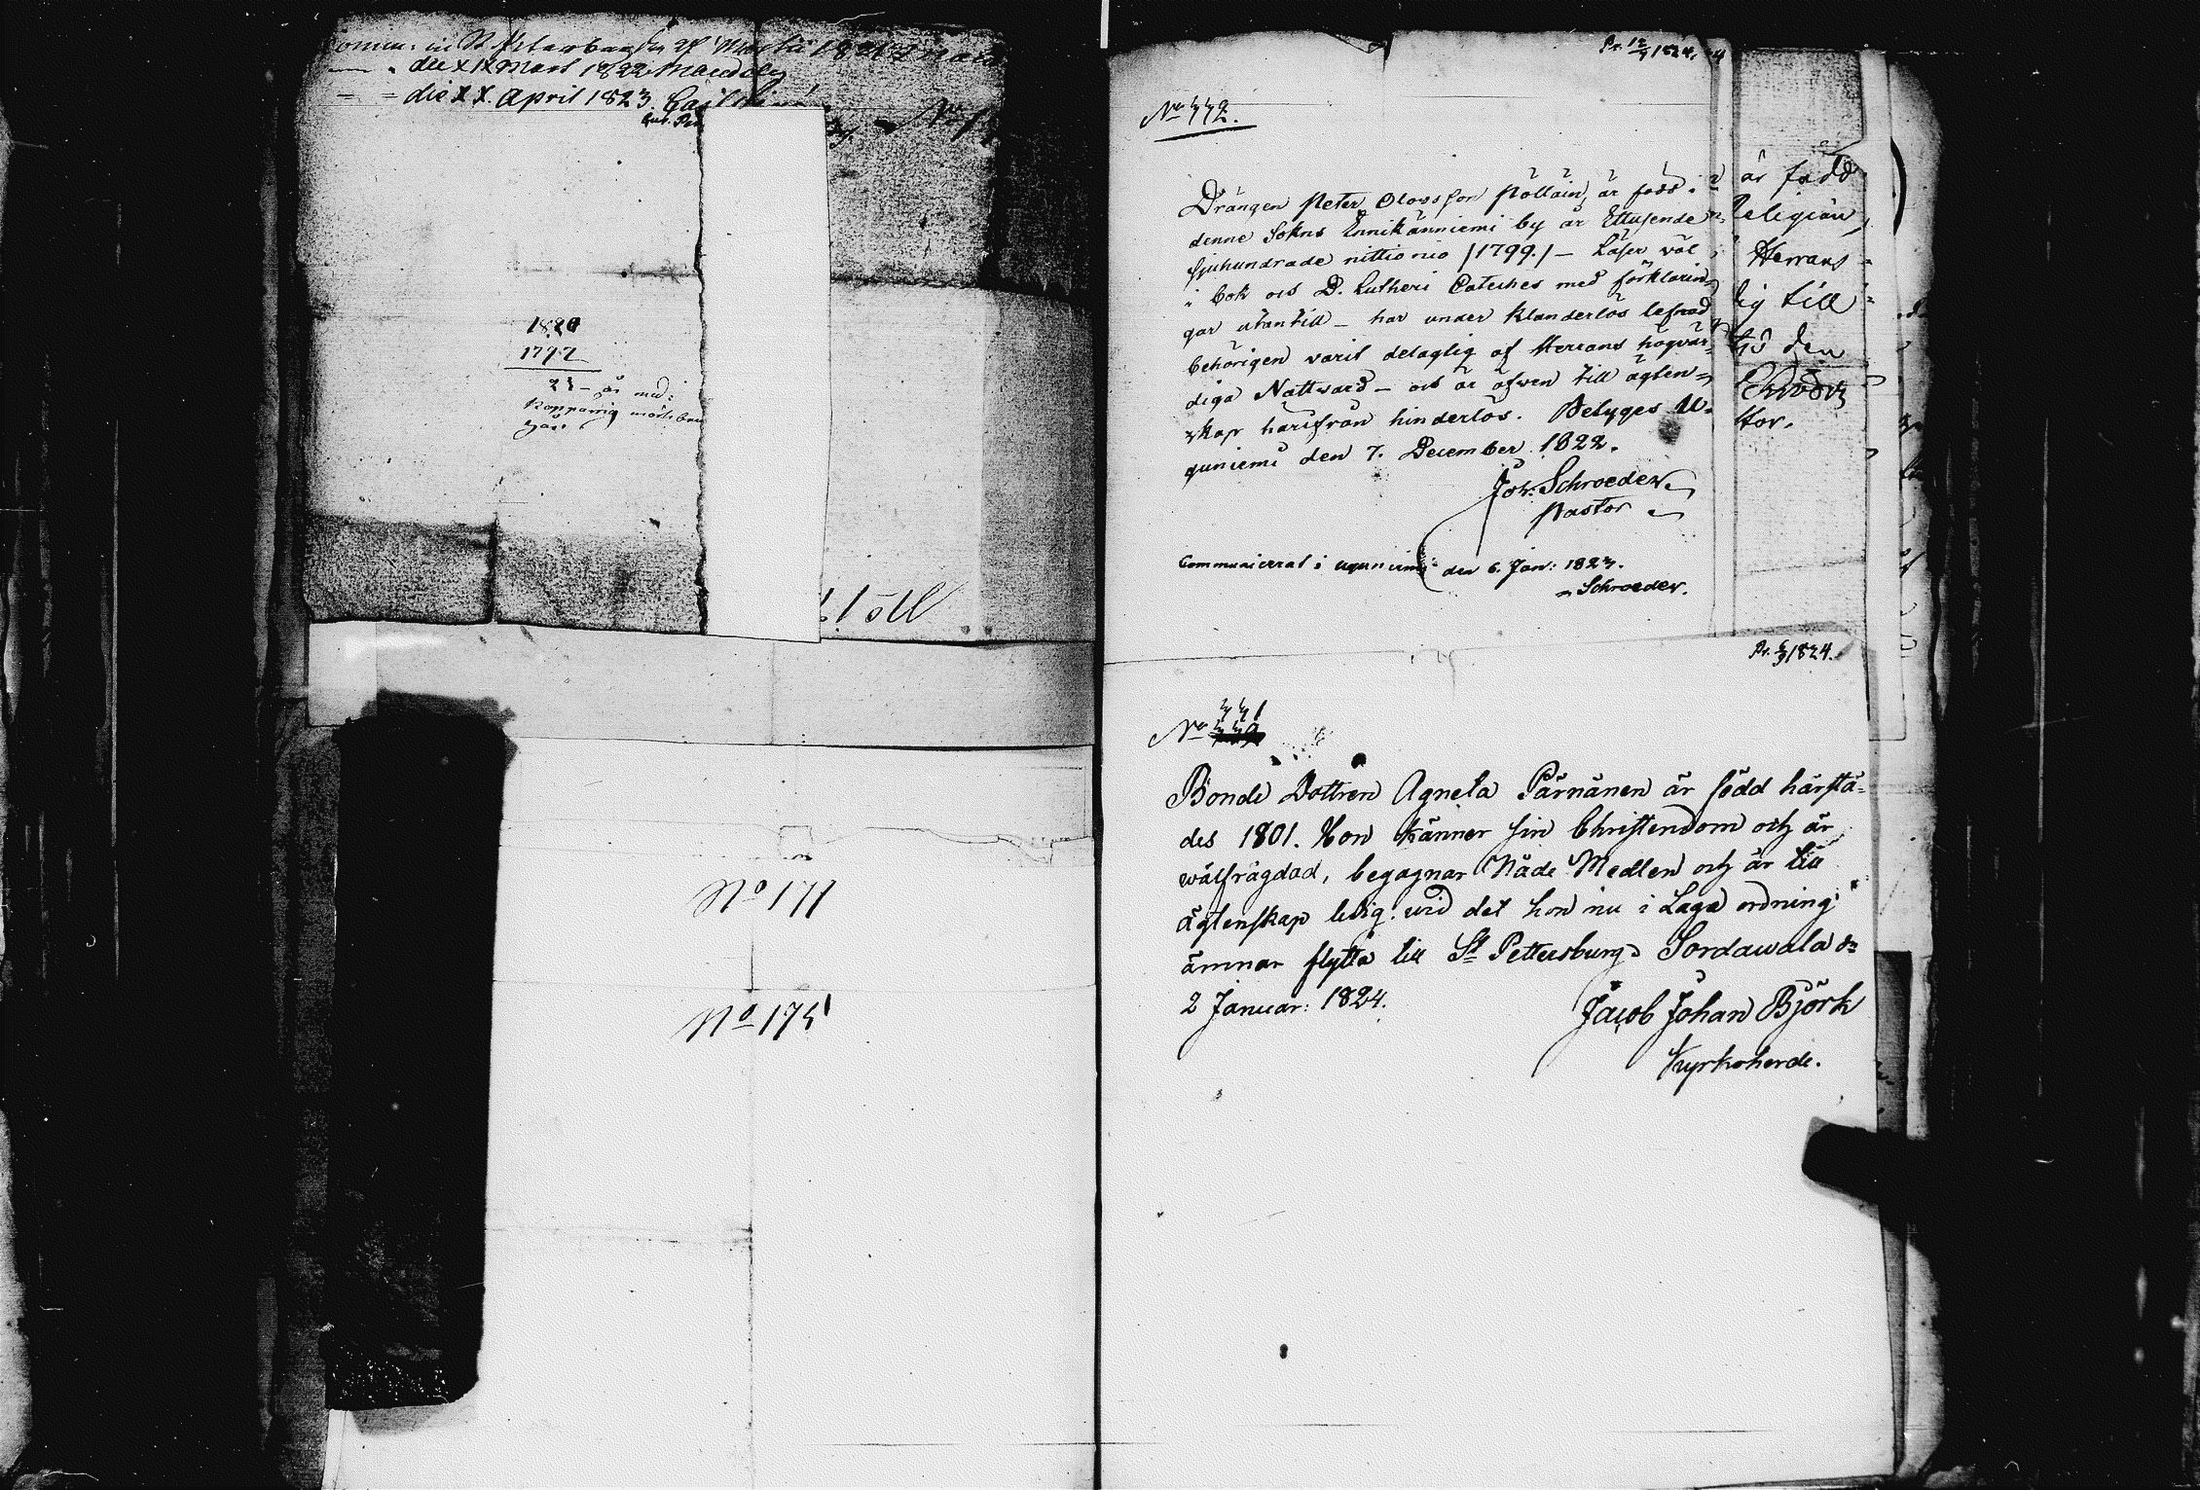 die XIX Mart 1822
die XX. April 1823.
1820
1797
23 - år med:
No 171
No 175
Pr. 12/9 1824.
No 332.
Drängen Peter Olofsson Pölläin, är född i
denne Sokns Ennikänniemi by år Ettusende
sjuhundrade nittionio /1799./ - Läser väl
i bok och D. Lutheri Cateches med förklarin=
gar utantill - har under klanderlös lefnad
behörigen varit delagtig af Herrans högvär=
diga Nattward - och är äfwen till ägten=
skap härifrån hinderlös. Betyges U=
guniemi den 7. December 1822.
Joh: Schroeder
Pastor
Communicerat i Uguniemi den 6. Jan: 1823.
Schroeder.
är född
Religion,
Herrans
lig till
den
tor.
Pr. 6/9 1824.
331
No
Bonde Dottren Agneta Pärnänen är född härstä=
des 1801. Hon känner sin Christendom och är
wälfrägdad, begagnar Nåde Medlen och är till
ägtenskap ledig. wid det hon nu i Laga ordning
ämnar flytta till St Pettersburg. Sordawala d:
2 Januar: 1824.
Jacob Johan Björk
Kyrkoherde.